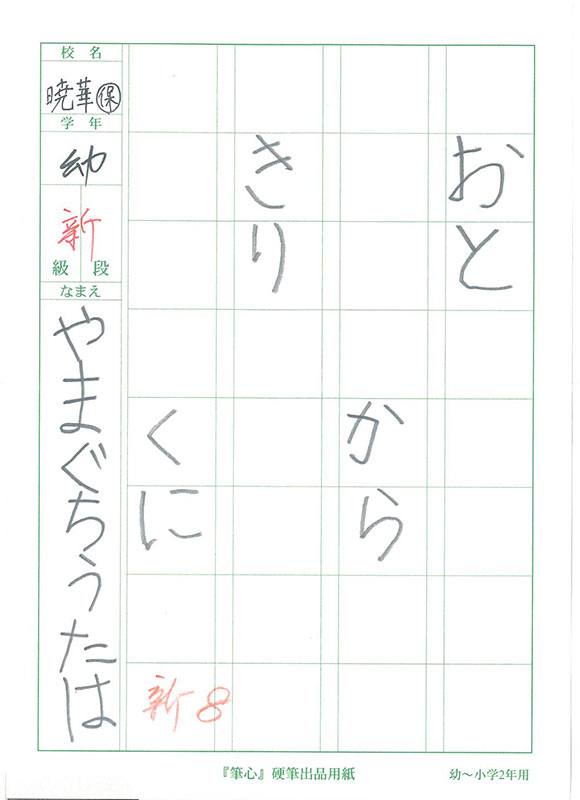 おと
から
きり
くに
新8
校名
暁華㊑保
学年
幼
新
級 段
なまえ
やまぐちうたは
『筆心』硬筆出品用紙
幼〜小学2年用